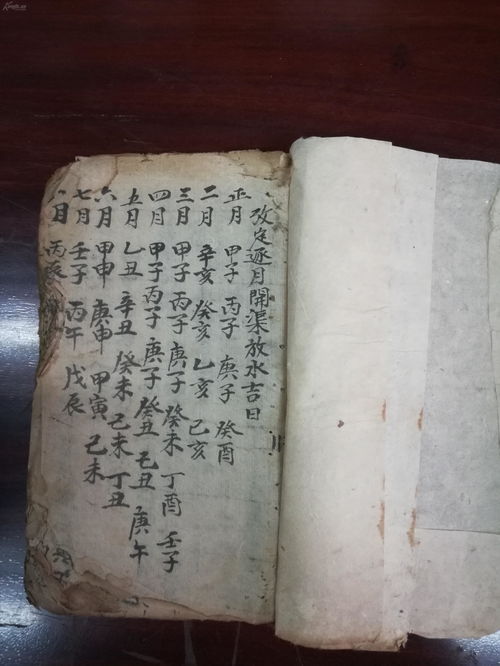 改定逐月開渠放水吉日
正月 甲子 丙子 庚子 癸酉
二月 辛亥 癸亥 乙亥 己亥
三月 甲子 丙子 庚子 癸未 丁酉 壬子
四月 甲子 丙子 庚子 癸丑 己丑 庚午
五月 乙丑 辛丑 癸未 己未 丁丑
六月 甲申 庚申 甲寅 己未
七月 壬子 丙午 戊辰
八月 丙辰